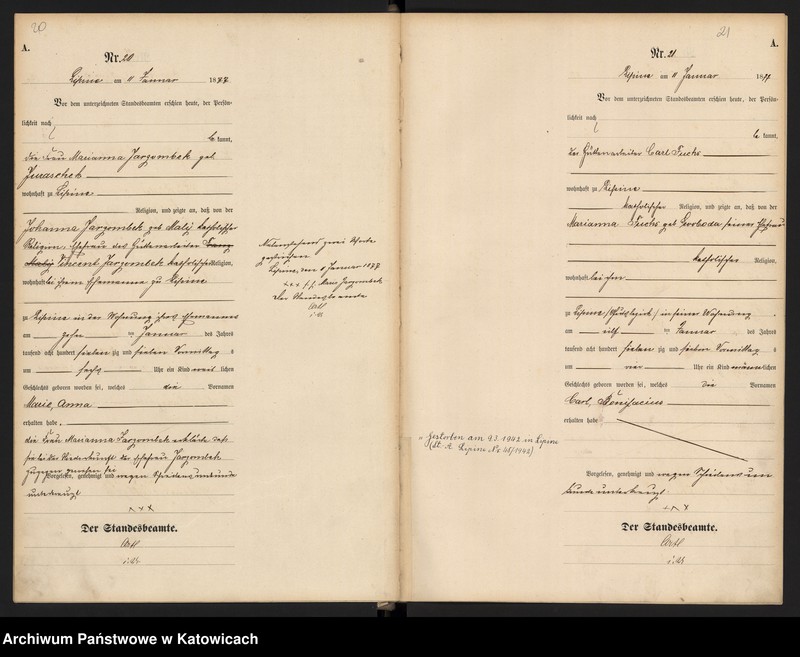 20
A.
Nr. 20
Lipine am 11 Januar 1877
Vor dem unterzeichneten Standesbeamten erschien heute, der Persön-
lichkeit nach
be kannt,
die Frau Marianna Jarzombek geb
wohnhaft zu Lipine
Religion, und zeigte an, daß von der
Johanna Jarzombek geb Malij katholischer
Religion, Ehefrau des Hüttenarbeiter Franz
Malij Vincent Jarzombek katholischer Religion,
wohnhaft bei ihrem Ehemanne zu Lipine
zu Lipine in der Wohnung ihres Ehemannes
am zehn ten Januar des Jahres
tausend acht hundert sieben zig und sieben Vormittag s
um sechs Uhr ein Kind weib lichen
Geschlechts geboren worden sei, welches die Vornamen
Marie, Anna
erhalten habe.
die Frau Marianna Jarzombek erklärte daß
sie bei der Niederkunft der Ehefrau Jarzombek
zugegen gewesen sei
Vorgelesen, genehmigt und wegen Schreibens unkunde
unterkreuzt
+++
Der Standesbeamte.
i. V.
Nebenstehend zwei Worte
gestrichen
Lipine, den 11 Januar 1877
+++ Marie Jarzombek
Der Standesbeamte
21
A.
Nr. 21
Lipine am 11 Januar 1877
Vor dem unterzeichneten Standesbeamten erschien heute, der Persön-
lichkeit nach
be kannt,
der Hüttenarbeiter Carl Fuchs
wohnhaft zu Lipine
katholischer Religion, und zeigte an, daß von der
Marianna Fuchs geb Swoboda seiner Ehefrau
katholischer Religion,
wohnhaft bei ihm
zu Lipine in seiner Wohnung
am elf ten Januar des Jahres
tausend acht hundert sieben zig und sieben Vormittag s
um vier Uhr ein Kind männ lichen
Geschlechts geboren worden sei, welches die Vornamen
Carl, Bonifacius
erhalten habe
Vorgelesen, genehmigt und wegen Schreibens un
kunde unterkreuzt
+++
Der Standesbeamte.
i. V.
Gestorben am 9.3.1942 in Lipine
(St. A. Lipine Nr. 45/1942)
Archiwum Państwowe w Katowicach